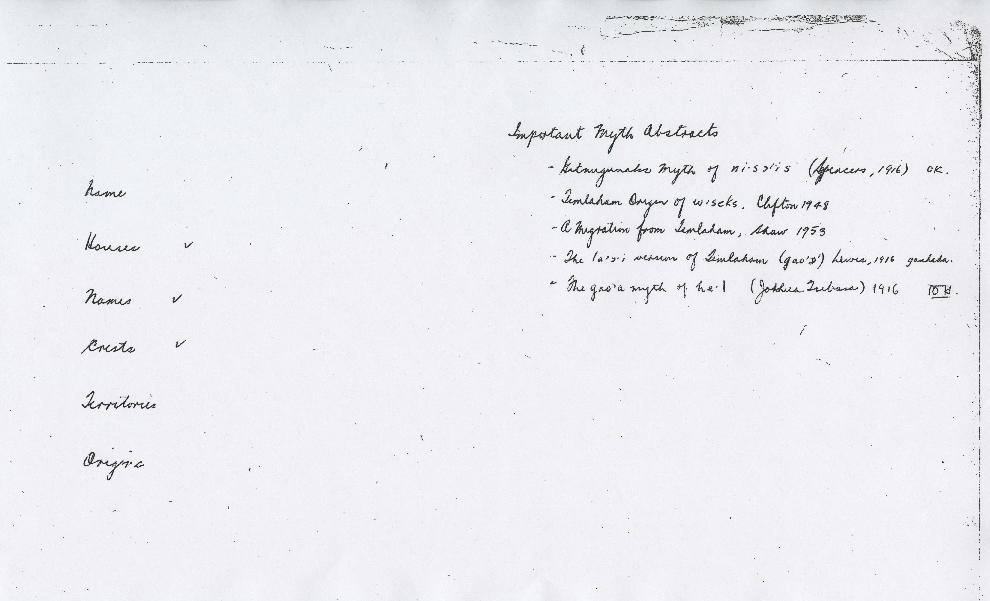 Name
Houses ✓
Names ✓
Crests ✓
Territories
Origins
Important Myth Abstracts
- Myth of ni·s (Spencers, 1916) OK.
- Temlaham Origin of wiseks, Clifton 1948
- A Migration from Temlaham, Shaw 1953
- The version of Temlaham (gao'ɔ') Lewis, 1916 ganhada.
- The gao'a myth of he·l (Joshua ) 1916